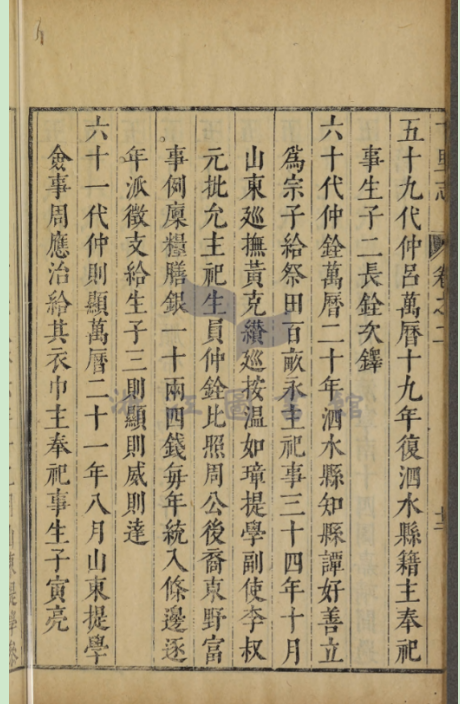 里志 卷之二 十二
五十九代仲呂萬曆十九年復泗水縣籍主奉祀
事生子二長銓次鐸
六十代仲銓萬曆二十年泗水縣知縣譚好善立
爲宗子給祭田百畝永主祀事三十四年十月
山東廵撫黃克纘廵按温如璋提學副使李叔
元批允主祀生員仲銓比照周公後裔東野富
事例廩糧膳銀一十兩四錢每年統入條邊逐
年派徵支給生子三則顯則威則達
六十一代仲則顯萬曆二十一年八月山東提學
僉事周應治給其衣巾主奉祀事生子寅亮
浙江圖書館